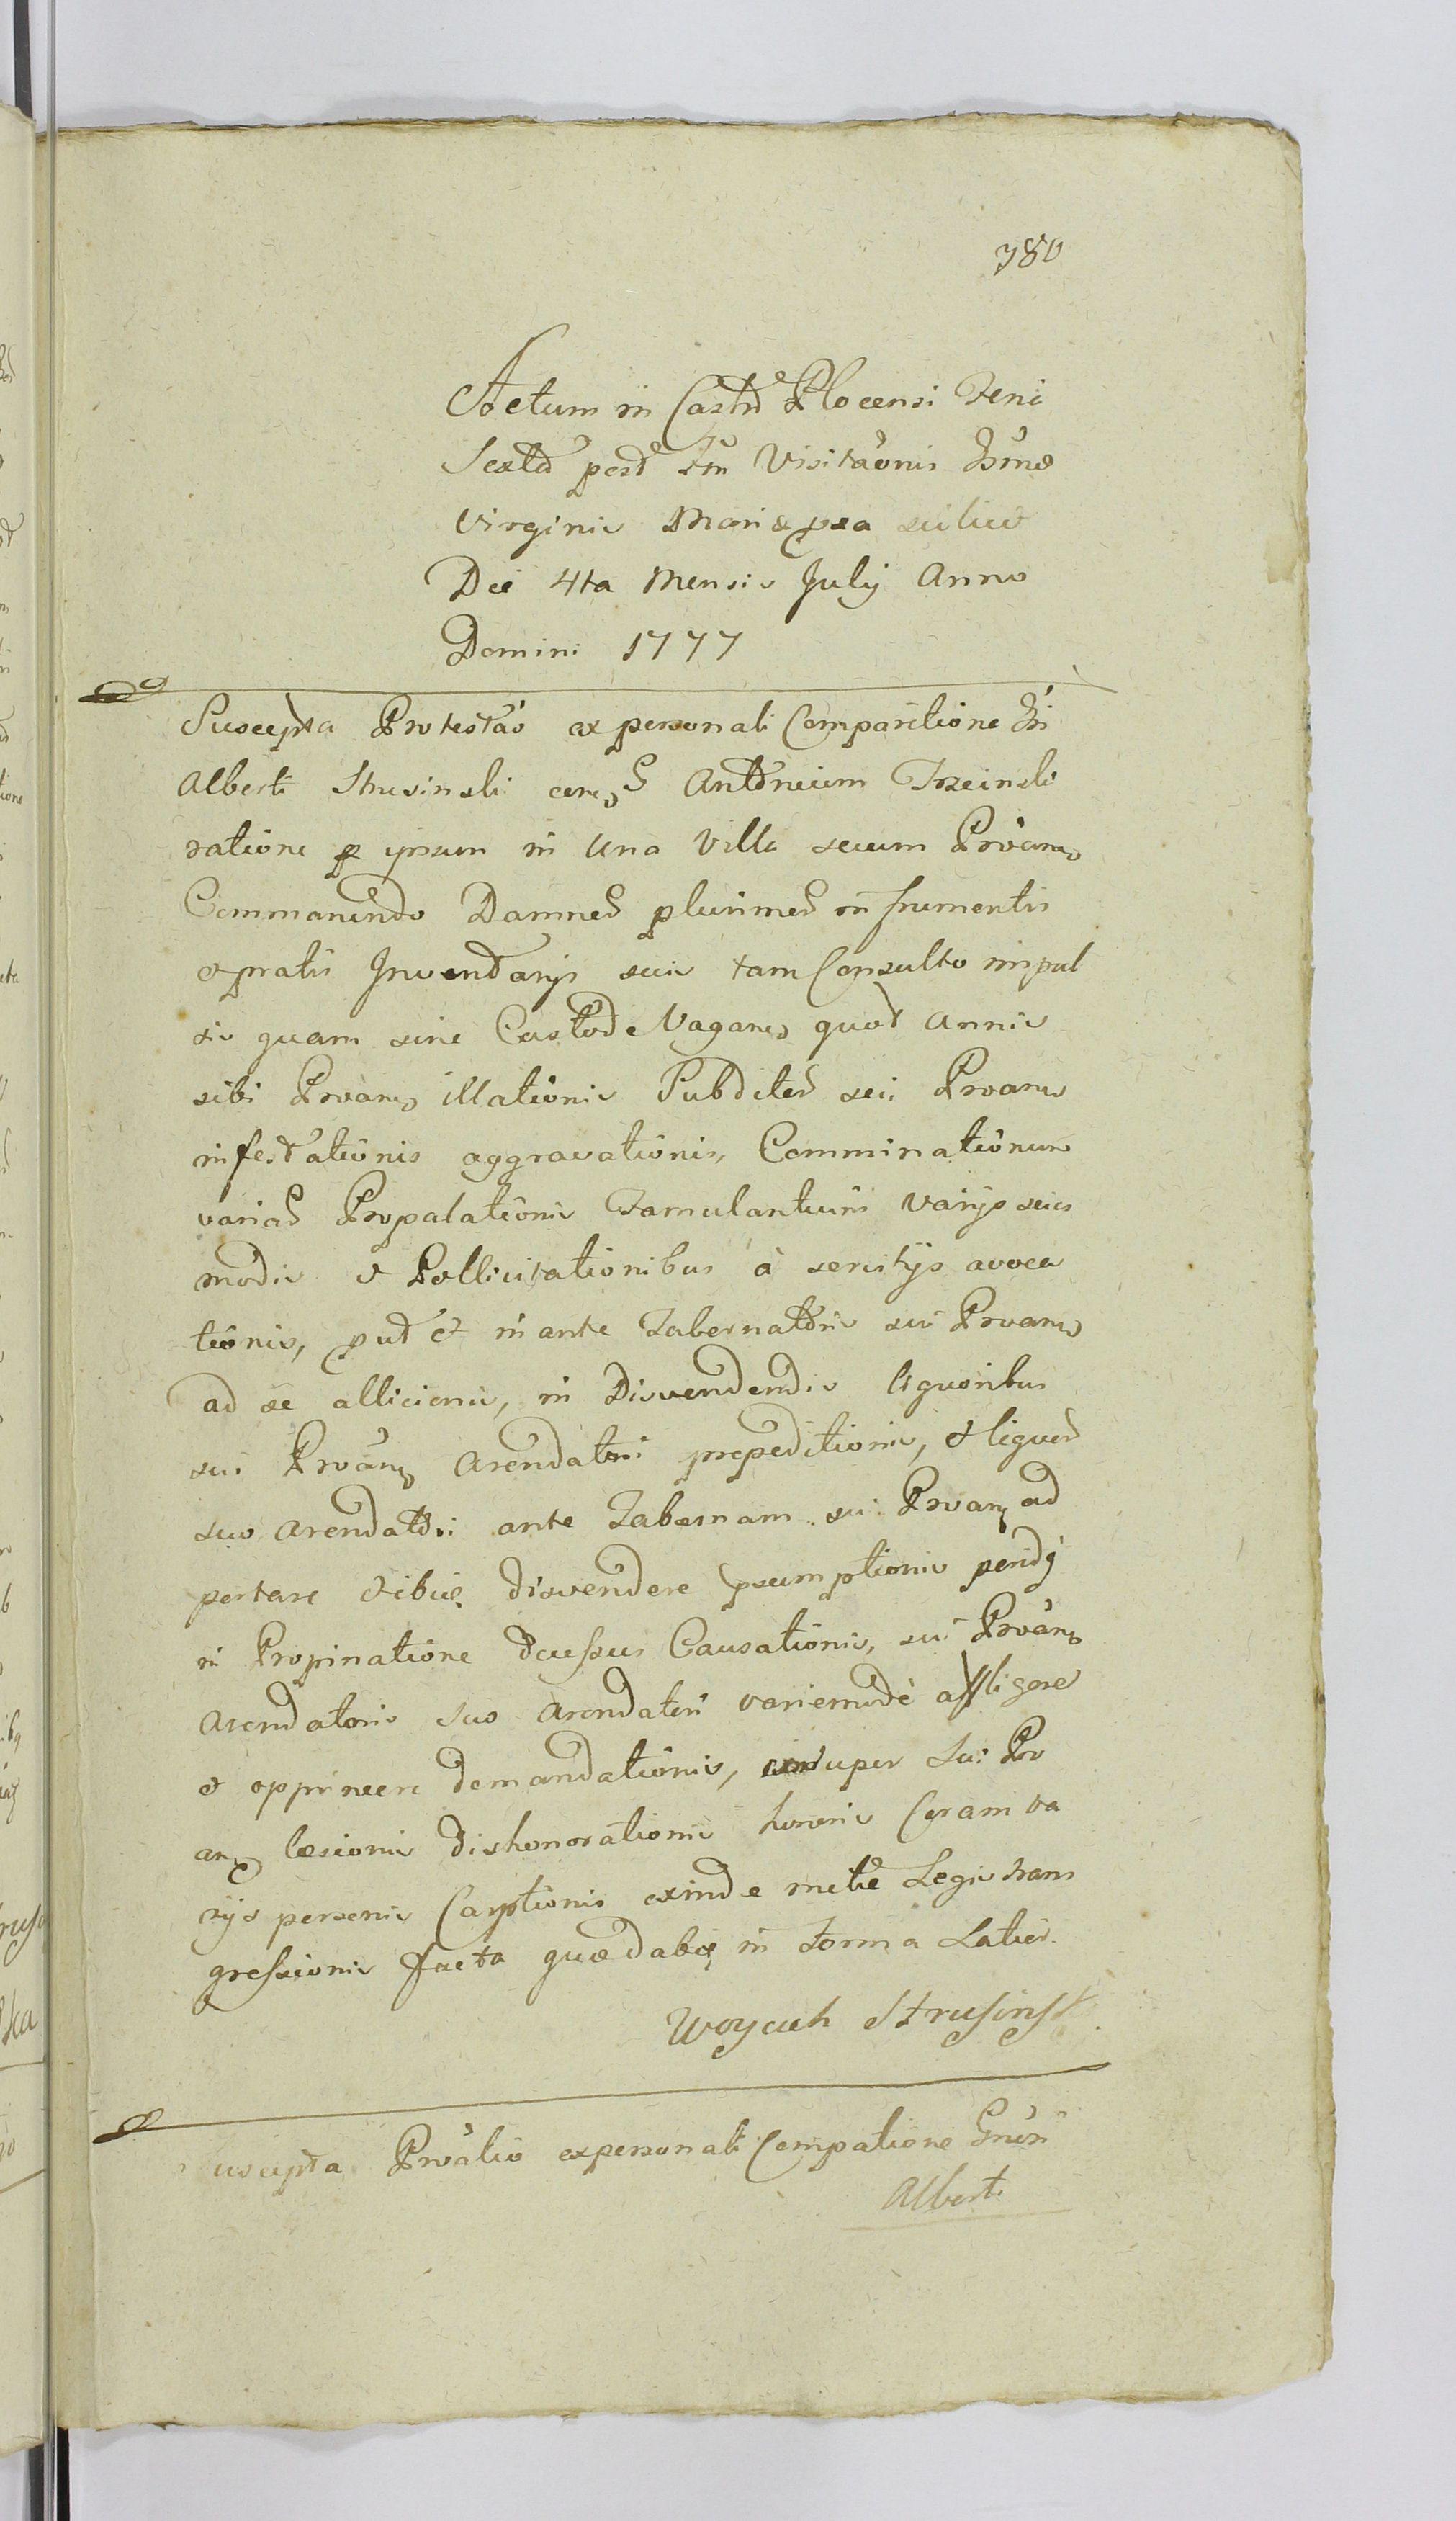 780
Actum in Castro Plocensi Feria
Sexta post Ftum Visitaonis Bsmae
Virginis Mariae pxa scilicet
Die 4ta Mensis July Anno
Domini 1777
Suscepta Protestao ex personali Comparitione
Alberti Strusinski Antonium
ratione p ipsum in una Villa secum Proane
Commanendo Damnor plurimor in frumentis
et pratis Inventarijs suis tam Consulto impul
sis quam sine Custode Vagane quot annis
sibi Proane illationis Subditor sui Proane
infestationis aggravationis, Comminationum
variar Propalationis Famulantium varijs suis
modis et Pollicitationibus à servitijs avoca
tionis, put et in ante Tabernatoris sui Proane
ad se allicionis, in Disvendendis liquoribus
sui Proane Arendatori prepeditionis, et liquor
suo Arendatori ante Tabernam sui Proane ad
portare et ibiq disvendere psumptionis
in Propinatione decussus Causationis, sui Proane
Arendatoris suo Arendatori variemode affligere
et opprimere demandationis, insuper sui Pro
ane laesionis dishonorationis honoris Coram va
rijs personis Carptionis exinde Legis trans
gressionis facta quae dabitur in Forma Latiori.
Woyciech Strusinski
Suscepta Proatio ex personali Compatione Gnosi
Alberti